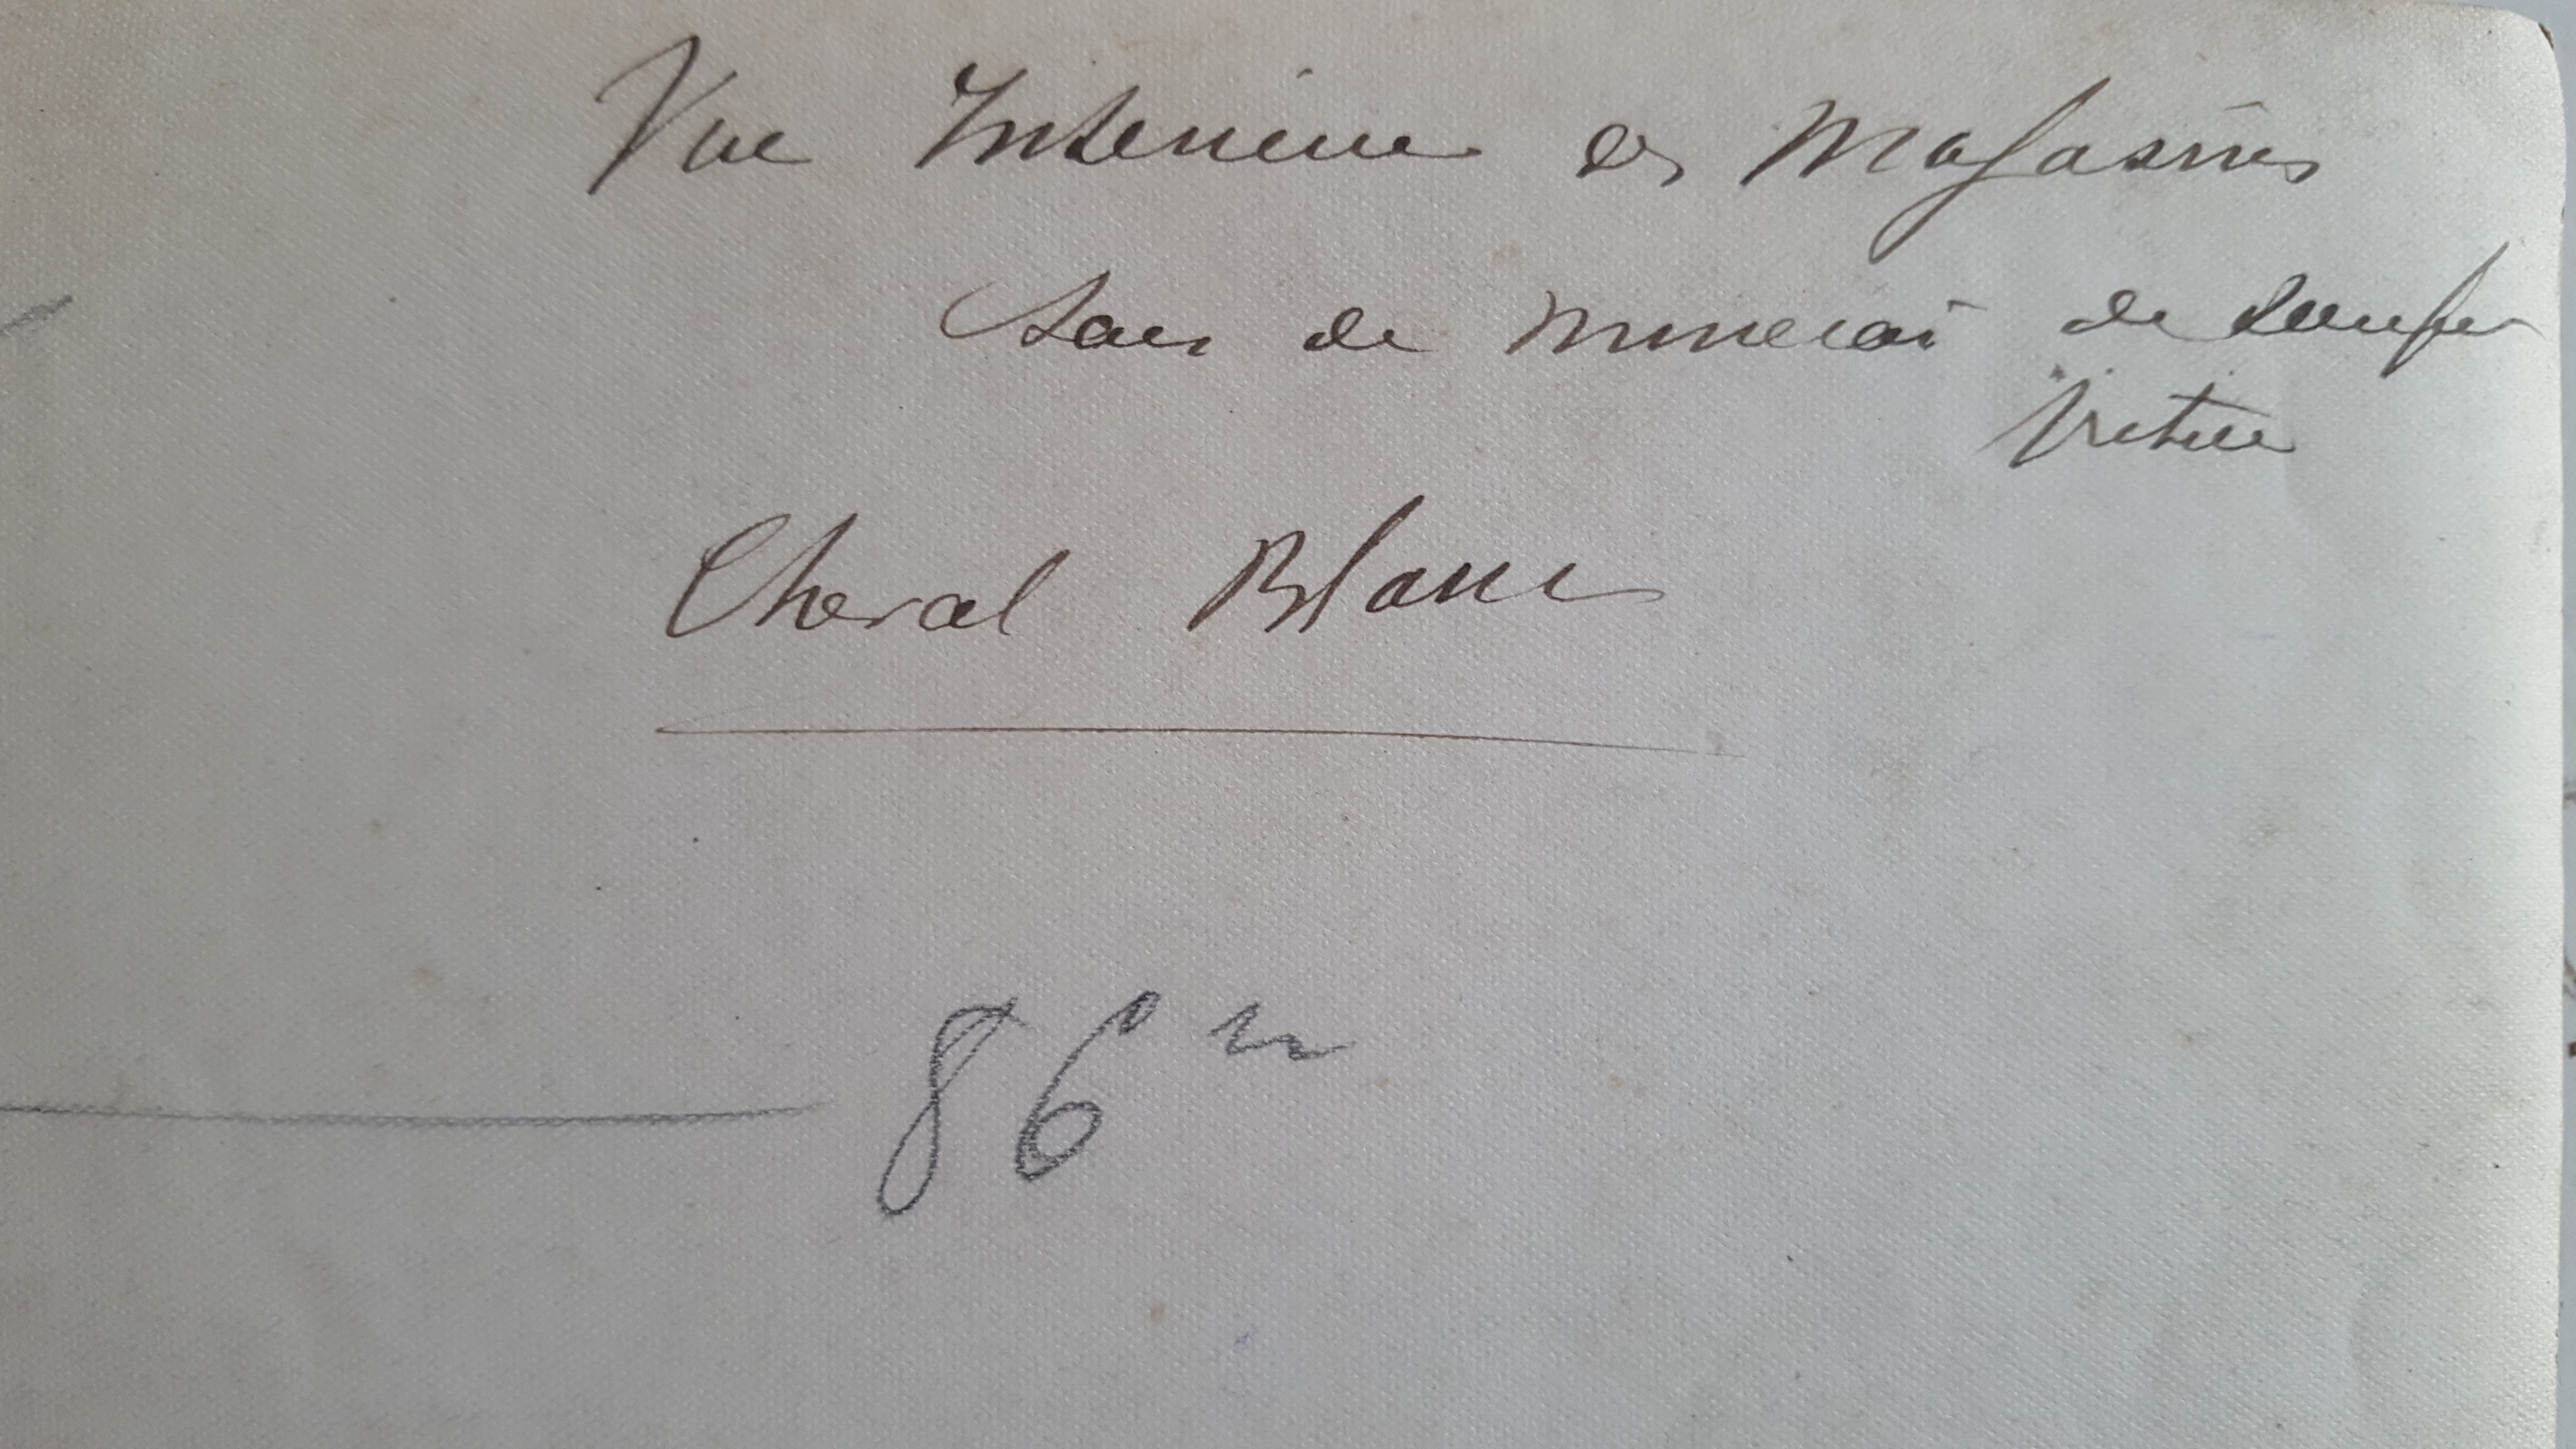 Vue Interieure des Magasins
Sacs de minerai de Soufre
triture
Cheval Blanc
86